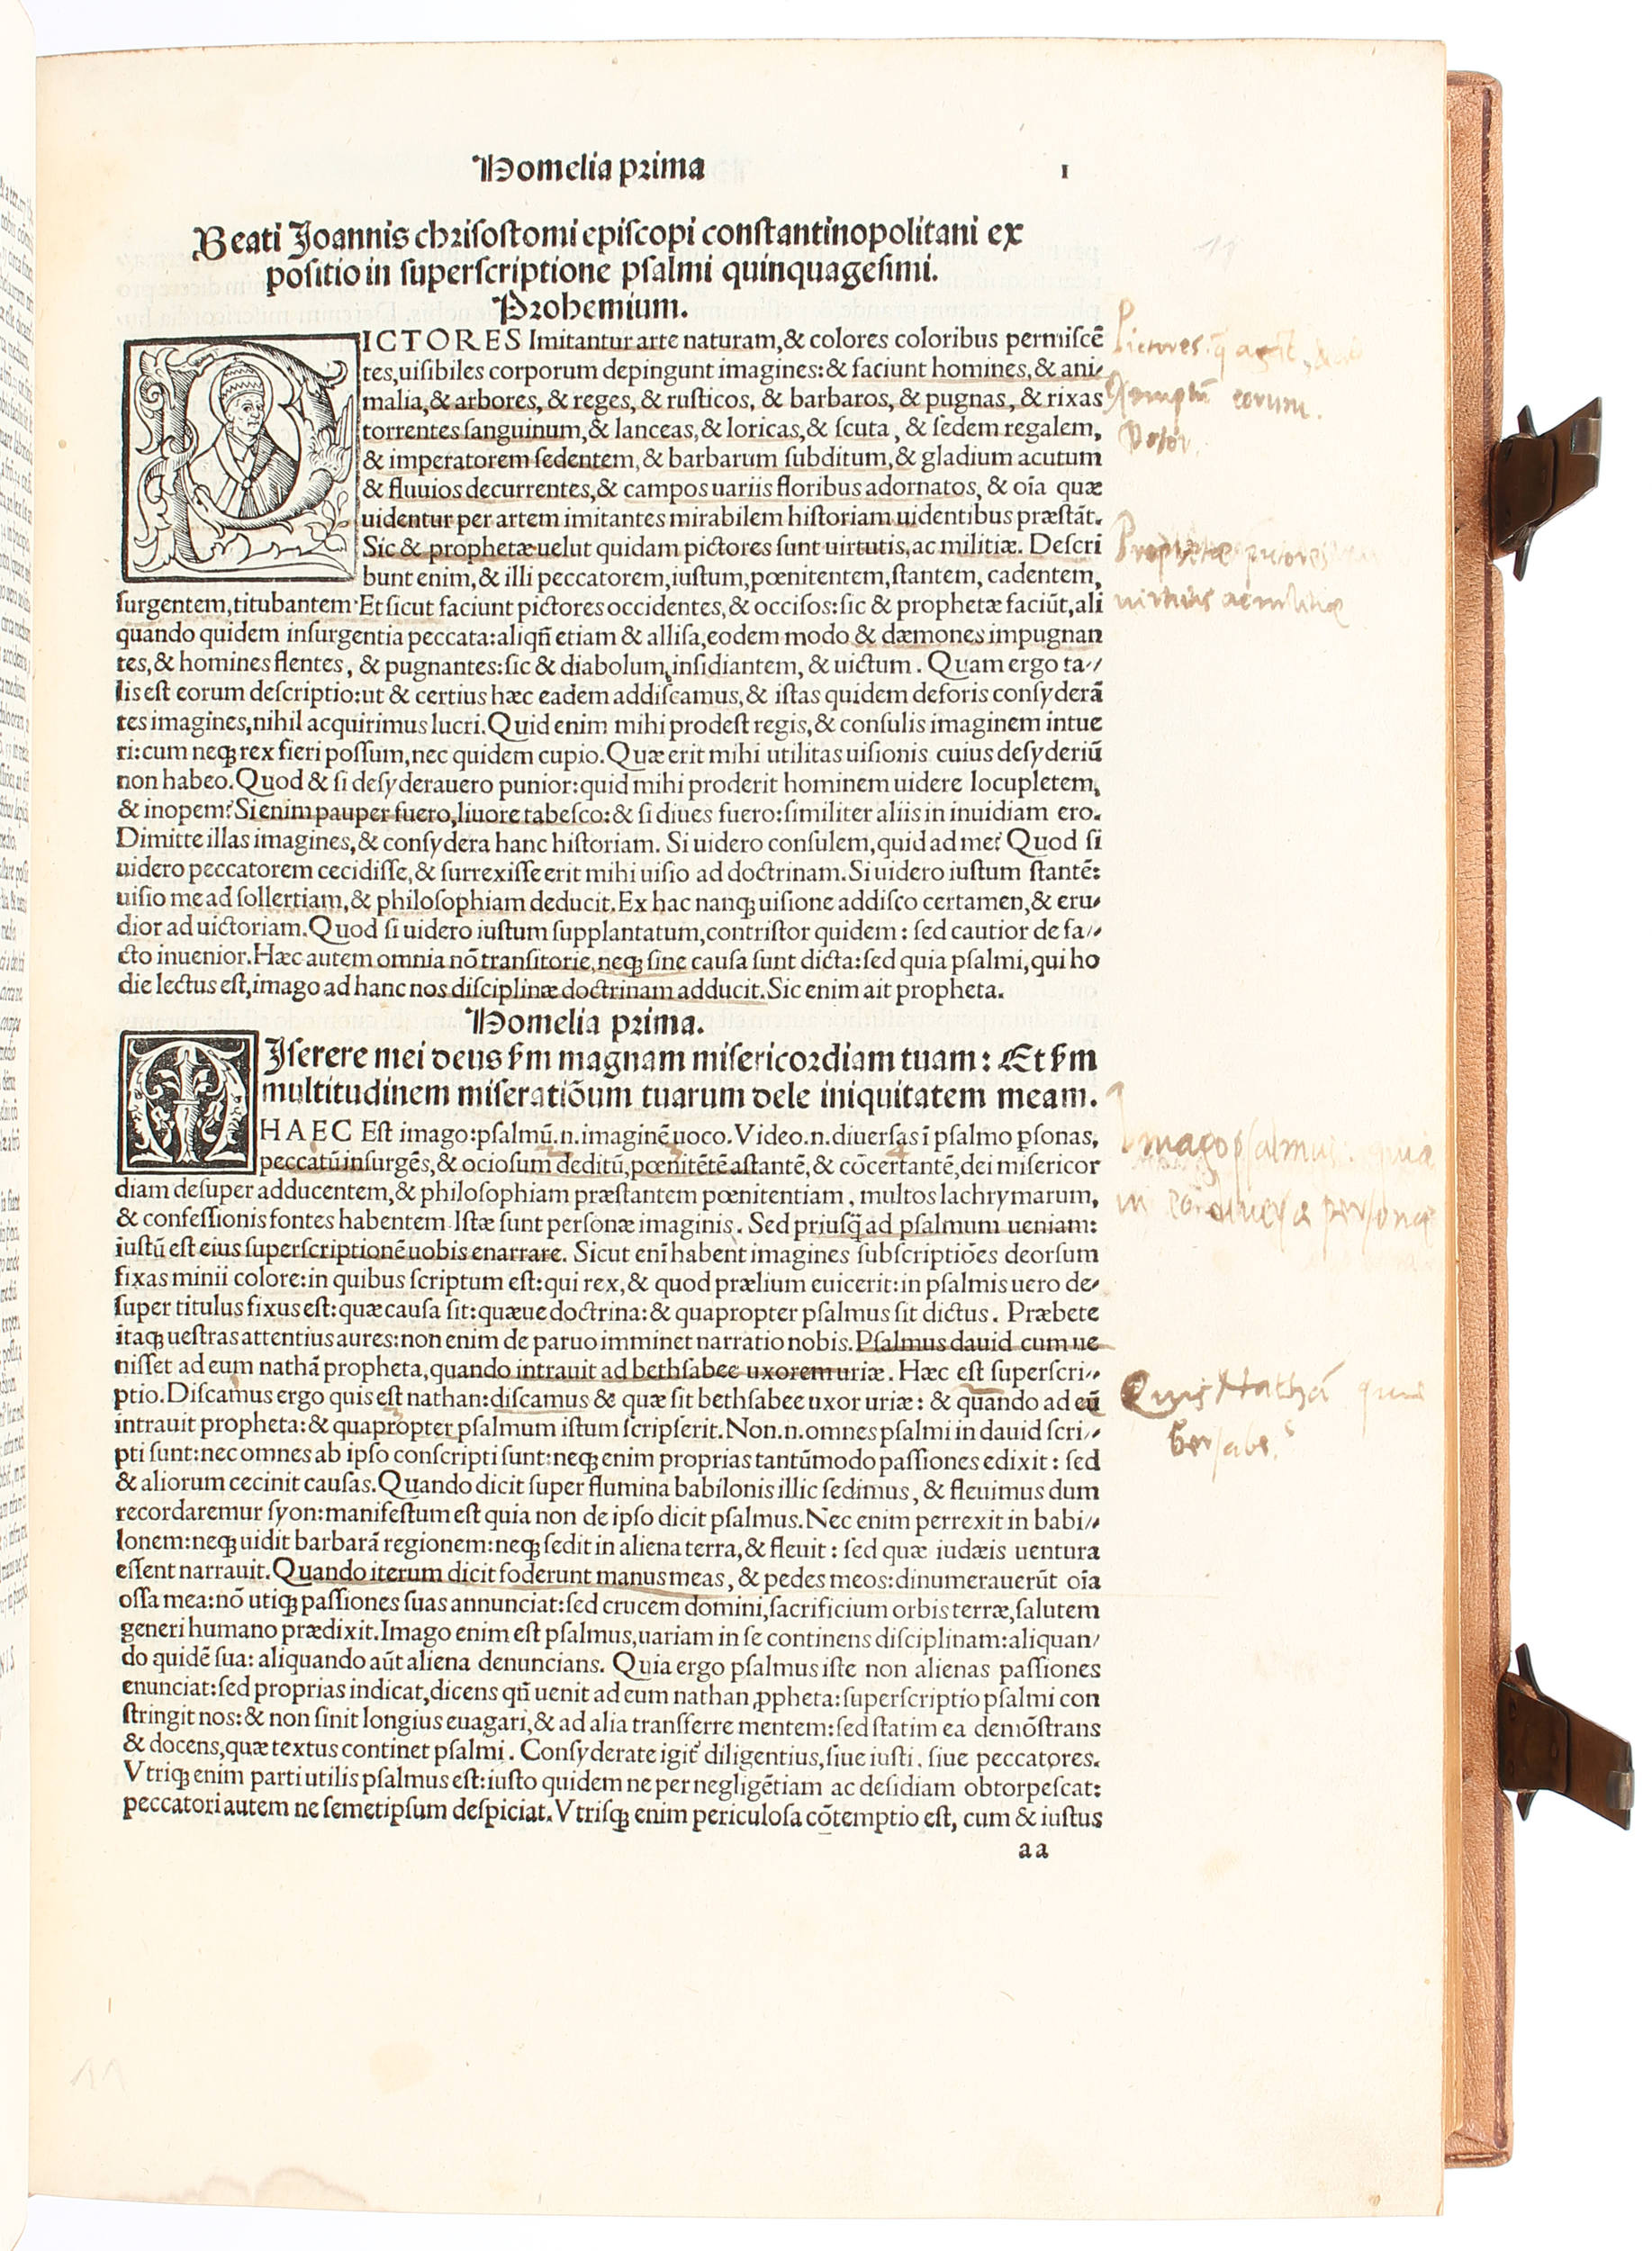 Homelia prima
1
Beati Joannis chrisostomi episcopi constantinopolitani ex
positio in superscriptione psalmi quinquagesimi.
Prohemium.
PICTORES Imitantur arte naturam,& colores coloribus permiscē
tes,uisibiles corporum depingunt imagines:& faciunt homines,& ani-
malia,& arbores, & reges, & rusticos, & barbaros, & pugnas, & rixas
torrentes sanguinum,& lanceas,& loricas,& scuta, & sedem regalem,
& imperatorem sedentem,& barbarum subditum,& gladium acutum
& fluuios decurrentes,& campos uariis floribus adornatos, & oīa quæ
uidentur per artem imitantes mirabilem historiam uidentibus præstāt.
Sic & prophetæ uelut quidam pictores sunt uirtutis,ac militiæ. Descri
bunt enim,& illi peccatorem,iustum,pœnitentem,stantem, cadentem,
surgentem,titubantem·Et sicut faciunt pictores occidentes,& occisos:sic & prophetæ faciūt,ali
quando quidem insurgentia peccata:aliqñ etiam & allisa,eodem modo & dæmones impugnan
tes,& homines flentes, & pugnantes:sic & diabolum,insidiantem, & uictum. Quam ergo ta-
lis est eorum descriptio:ut & certius hæc eadem addiscamus,& istas quidem deforis consyderā
tes imagines,nihil acquirimus lucri.Quid enim mihi prodest regis,& consulis imaginem intue
ri:cum neqꝫ rex fieri possum,nec quidem cupio.Quæ erit mihi utilitas uisionis cuius desyderiū
non habeo.Quod & si desyderauero punior:quid mihi proderit hominem uidere locupletem,
& inopem?Si enim pauper fuero,liuore tabesco:& si diues fuero:similiter aliis in inuidiam ero.
Dimitte illas imagines,& consydera hanc historiam. Si uidero consulem,quid ad me? Quod si
uidero peccatorem cecidisse,& surrexisse erit mihi uisio ad doctrinam.Si uidero iustum stantē:
uisio me ad sollertiam,& philosophiam deducit.Ex hac nanqꝫ uisione addisco certamen,& eru-
dior ad uictoriam.Quod si uidero iustum supplantatum,contristor quidem: sed cautior de fa-
cto inuenior.Hæc autem omnia nō transitorie,neqꝫ sine causa sunt dicta:sed quia psalmi,qui ho
die lectus est,imago ad hanc nos disciplinæ doctrinam adducit.Sic enim ait propheta.
Homelia prima.
MIserere mei deus fm magnam misericordiam tuam: Et fm
multitudinem miseratiōum tuarum dele iniquitatem meam.
HAEC Est imago:psalmū.n.imaginē uoco.Video.n.diuersas ī psalmo psonas,
peccatū insurgēs,& ociosum deditū,pœnitētē astantē,& cōcertantē,dei misericor
diam desuper adducentem,& philosophiam præstantem pœnitentiam, multos lachrymarum,
& confessionis fontes habentem Istæ sunt personæ imaginis. Sed priusq̃ ad psalmum ueniam:
iustū est eius superscriptionē uobis enarrare. Sicut enī habent imagines subscriptiōes deorsum
fixas minii colore:in quibus scriptum est:qui rex,& quod prælium euicerit:in psalmis uero de-
super titulus fixus est:quæ causa sit:quæue doctrina:& quapropter psalmus sit dictus. Præbete
itaqꝫ uestras attentius aures:non enim de paruo imminet narratio nobis.Psalmus dauid cum ue
nisset ad eum nathā propheta,quando intrauit ad bethsabee uxorem uriæ. Hæc est superscri-
ptio.Discamus ergo quis est nathan:discamus & quæ sit bethsabee uxor uriæ: & quando ad eū
intrauit propheta:& quapropter psalmum istum scripserit.Non.n.omnes psalmi in dauid scri-
pti sunt:nec omnes ab ipso conscripti sunt:neqꝫ enim proprias tantūmodo passiones edixit: sed
& aliorum cecinit causas.Quando dicit super flumina babilonis illic sedimus, & fleuimus dum
recordaremur syon:manifestum est quia non de ipso dicit psalmus.Nec enim perrexit in babi-
lonem:neqꝫ uidit barbarā regionem:neqꝫ sedit in aliena terra,& fleuit: sed quæ iudæis uentura
essent narrauit.Quando iterum dicit foderunt manus meas, & pedes meos:dinumerauerūt oīa
ossa mea:nō utiqꝫ passiones suas annunciat:sed crucem domini,sacrificium orbis terræ,salutem
generi humano prædixit.Imago enim est psalmus,uariam in se continens disciplinam:aliquan-
do quidē sua: aliquando aūt aliena denuncians. Quia ergo psalmus iste non alienas passiones
enunciat:sed proprias indicat,dicens qñ uenit ad eum nathan ꝓpheta:superscriptio psalmi con
stringit nos:& non sinit longius euagari,& ad alia transferre mentem:sed statim ea demōstrans
& docens,quæ textus continet psalmi. Consyderate igit᷑ diligentius,siue iusti, siue peccatores.
Vtriqꝫ enim parti utilis psalmus est:iusto quidem ne per negligētiam ac desidiam obtorpescat:
peccatori autem ne semetipsum despiciat.Vtrisqꝫ enim periculosa cōtemptio est, cum & iustus
aa
Pictores
eorum.
Prophetæ pictores
uirtutis ac militiæ
Imago psalmus:
diuersæ personæ
Quis Nathā
Bersabe?